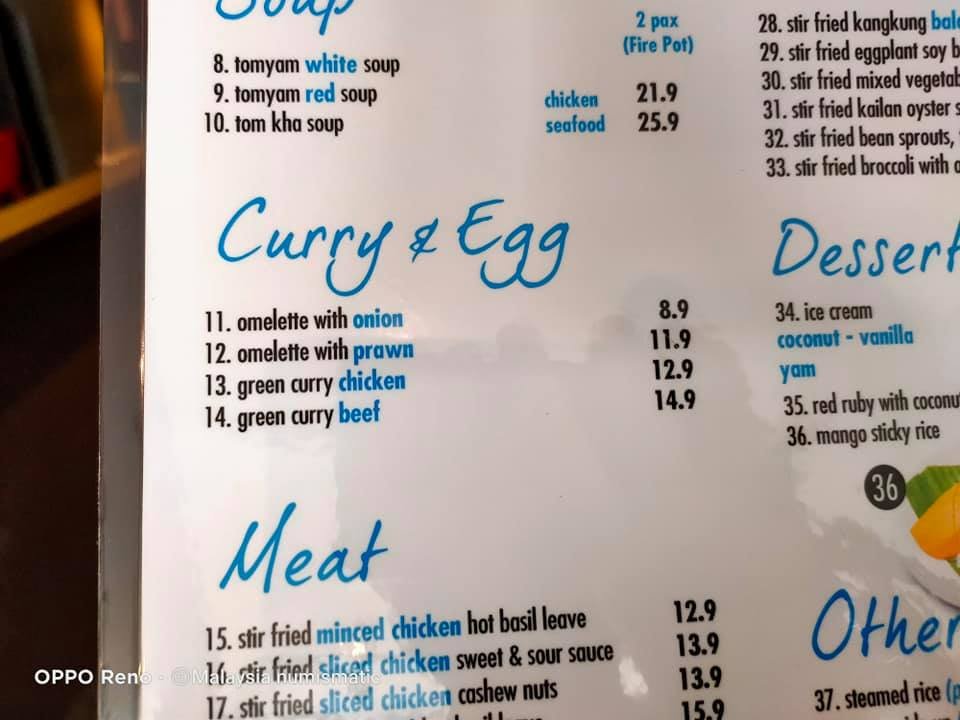 Soup
2 pax
(Fire Pot)
8. tomyam white soup
9. tomyam red soup
chicken 21.9
10. tom kha soup
seafood 25.9
Curry & Egg
11. omelette with onion 8.9
12. omelette with prawn 11.9
13. green curry chicken 12.9
14. green curry beef 14.9
Meat
15. stir fried minced chicken hot basil leave 12.9
16. stir fried sliced chicken sweet & sour sauce 13.9
17. stir fried sliced chicken cashew nuts 13.9
15.9
28. stir fried kangkung
29. stir fried eggplant soy
30. stir fried mixed
31. stir fried kailan oyster
32. stir fried bean sprouts,
33. stir fried broccoli with
Dessert
34. ice cream
coconut - vanilla
yam
35. red ruby with
36. mango sticky rice
36
Other
37. steamed rice
OPPO Reno · ©Malaysia numismatic